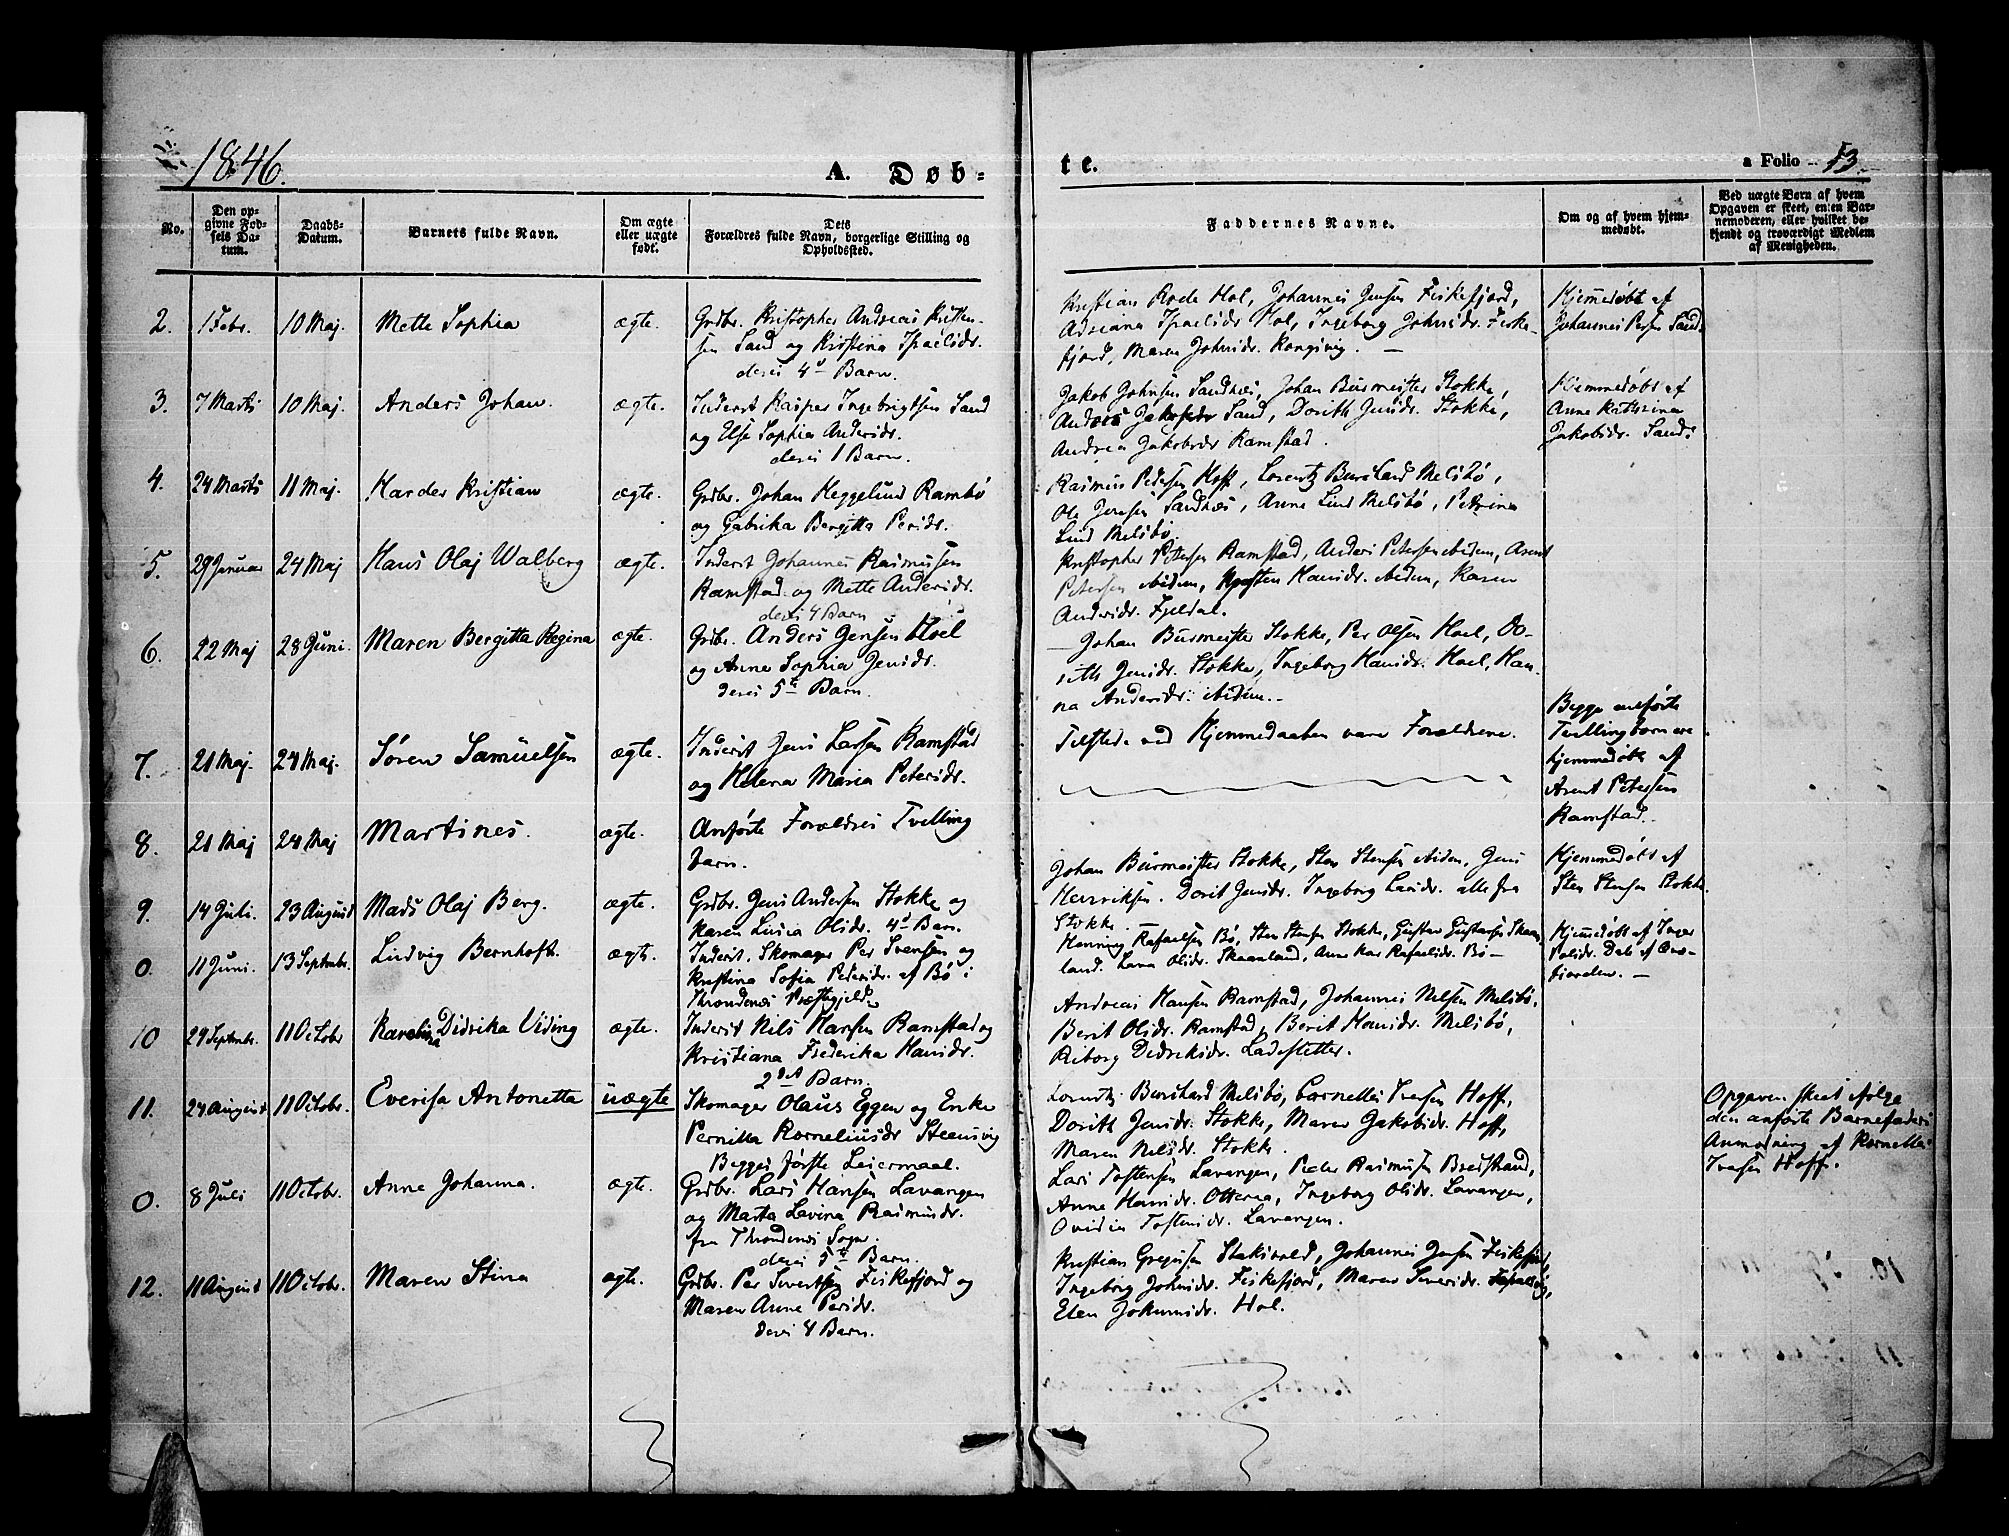 1846.
A. Døb-
te.
a Folio 13.
No.
Den op-
givne Fød-
sels Da-
tum.
Daabs-
Datum.
Barnets fulde Navn.
Om ægte
eller uægte
født.
Dets
Forældres fulde Navn, borgerlige Stilling og
Opholdssted.
Faddernes Navne.
Om og af hvem hjem-
medøbt.
Ved uægte Børn af hvem
Opgaven er skeet, enten Bar-
nemoderen, eller hvilket be-
kjendt og troværdigt Medlem
af Menigheden.
2. 1 Febr. 10 Maj. Mette Sophia ægte.
Grdbr. Kristopher Andreas Kristen-
sen Sand og Kristina Israelsdr.
deres 4de Barn.
Kristian Rode Hol, Johannes Jensen Fiskefjord,
Adriana Israelsdr Hol, Ingeborg Johnsdr. Fiske-
fjord, Maren Johnsdr. Kongsvig.
Hjemmedøbt af
Johannes Persen Sand.
3. 7 Marts 10 Maj. Anders Johan. ægte.
Inderst Kasper Ingebrigtsen Sand
og Else Sophia Andersdr.
deres 1 Barn.
Jakob Johnsen Sandnæs, Johan Burmeister Stokke,
Anders Sand, Dorith Jensdr. Stokke,
Andrea Jakobsdr Ramstad.
Hjemmedøbt af
Anne Kathrina
Jakobsdr. Sand.
4. 24 Marts 11 Maj. Harder Kristian ægte.
Grdbr. Johan Heggelund Rambø
og Gabrika Bergitta Persdr.
Rasmus Pedersen Hoff, Lorentz Melsbø,
Ole Jensen Sandnæs, Anne Lind Melsbø, Petrina
Lind Melsbø.
5. 29 Januar 24 Maj Hans Olaj Walberg ægte.
Inderst Johannes Rasmusen
Ramstad og Mette Andersdr.
deres 4 Barn
Kristopher Petersen Ramstad, Anders Petersen ibidem, Arent
Petersen ibidem, Hansdr. ibidem, Karen
Andersdr. Fjeldal.
6. 22 Maj 28 Juni. Maren Bergitta Regina ægte.
Grdbr. Anders Jensen Hoel
og Anne Sophia Jensdr.
deres 5te Barn.
Johan Burmeister Stokke, Per Olsen Hoel, Do-
rith Jensdr. Stokke, Ingeborg Hansdr. Hoel, Han-
na Andersdr. ibidem.
7. 21 Maj. 24 Maj. Søren Samuelsen ægte.
Inderst Jens Larsen Ramstad
og Helena Maria Petersdr.
Tilstede ved Hjemmedaaben vare Forældrene.
Begge anførte
Tvillingbørn ere
hjemmedøbte af
Arent Petersen
Ramstad.
8. 21 Maj 24 Maj Martines. ægte.
Anførte Forældres Tvilling
barn.
9. 14 Juli. 23 August Mads Olaj Berg. ægte.
Grdbr. Jens Andersen Stokke og
Karen Lusia Olsdr. 4de Barn.
Johan Burmeister Stokke, Sten Stensen ibidem, Jens
Henriksen. Dorit Jensdr. Ingeborg Larsdr. alle fra
Stokke.
Hjemmedøbt af
Sten Stensen Stokke.
0. 11 Juni. 13 Septembr. Ludvig Bernhoft. ægte.
Inderst. Skomager Per Svensen og
Kristina Sofia Pedersdr. af Bø i
Throndenes Præstegjeld.
Henning Rafaelsen Bø, Sten Stensen Stokke, Gustav Gustavsen Skaan-
land. Lava Olsdr. Skaanland, Anne Kar Rafaelsdr. Bø
Hjemmedøbt af Inger
10 29 Septembr. 11 Octobr Karolina Didrika Viding ægte.
Inderst Nils Hansen Ramstad og
Kristiana Frederika Hansdr.
2det Barn.
Andreas Hansen Ramstad, Johannes Nilsen Melsbø,
Berit Olsdr. Ramstad, Berit Hansdr. Melsbø,
Riborg Dedriksdr. Ladestetter.
11. 24 August 11 Octobr. Everisa Antonetta uægte
Skomager Olaus Eggen og Enke
Pernilla Korneliusdr Steensvig
Begges første Leiermaal.
Lorentz Melsbø, Cornelles Ivesen Hoff,
Dorith Jensdr. Stokke, Maren Jakobsdr. Hoff,
Maren Nilsdr. Stokke.
Opgaven skeet ifølge
den anførte Barnefaders
Anmodning af Kornelles
Ivesen Hoff.
0. 8 Juli 11 Octobr. Anne Johanna. ægte.
Grdbr. Lars Hansen Lavangen
og Marta Lavina Rasmusdr.
fra Throndenes Sogn.
deres 5te Barn.
Lars Tostensen Lavangen, Peder Rasmusen Bredstrand,
Anne Hansdr. Otteraa, Ingeborg Olsdr. Lavangen,
Ovidia Tostensdr. Lavangen.
12. 11 August 11 Octobr. Maren Stina ægte.
Grdbr. Per Sivertsen Fiskefjord og
Maren Anne Persdr.
deres 4 Barn.
Kristian Gregusen Staksvold, Johannes Jensen Fiskefjord,
Ingeborg Johnsdr. Fiskefjord, Maren Siversdr.
Elen Jokumsdr. Hol.